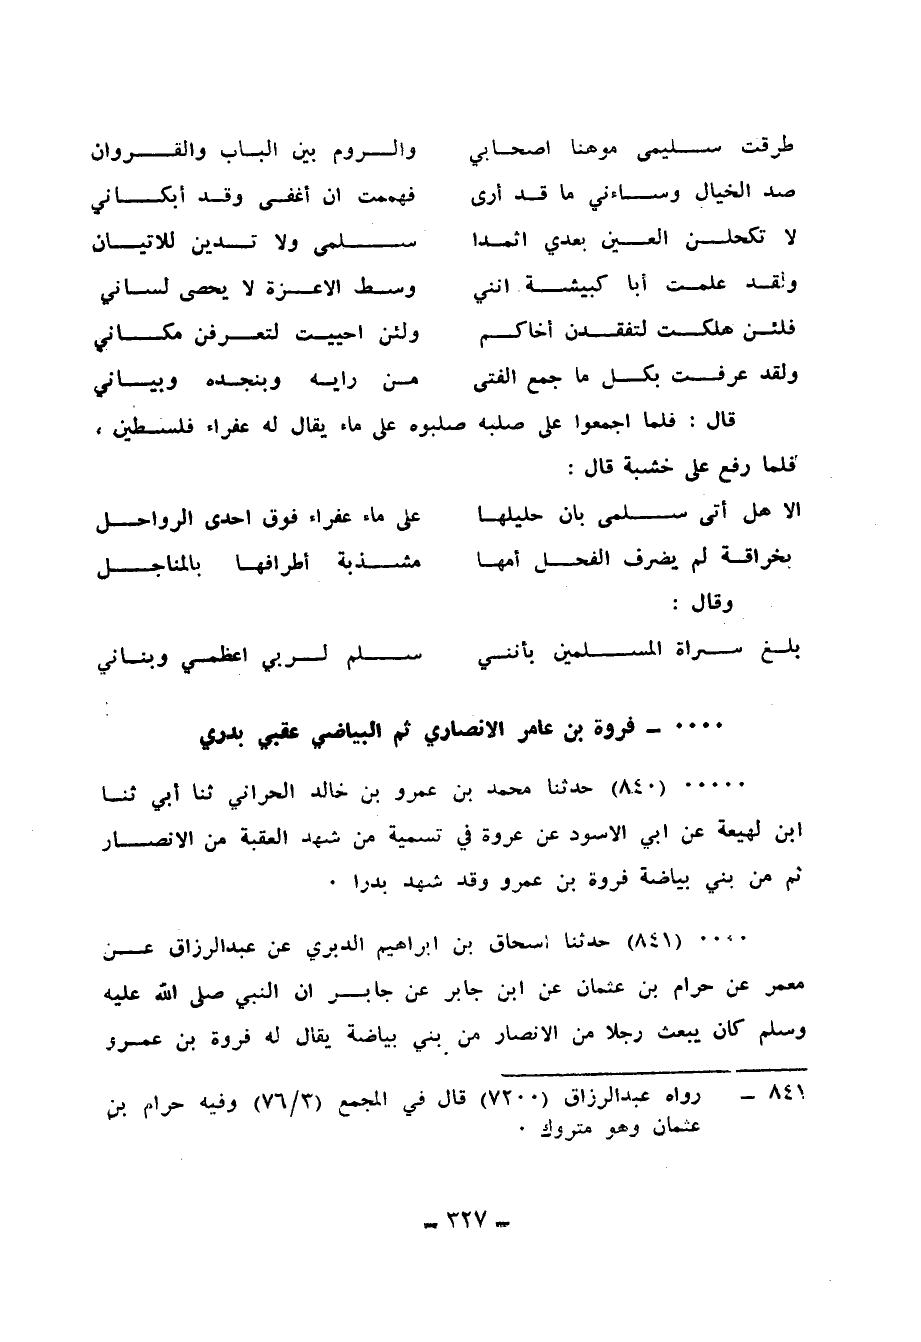 طرقت سليمى موهنا اصحابي والروم بين الباب والقروان
صد الخيال وساءني ما قد أرى فهممت ان أغفى وقد أبكاني
لا تكحلن العين بعدي اثمدا سلمى ولا تدين للاتيان
ولقد علمت أبا كبيشة انني وسط الاعزة لا يحصى لساني
فلئن هلكت لتفقدن أخاكم ولئن احييت لتعرفن مكاني
ولقد عرفت بكل ما جمع الفتى من رايه وبنجده وبياني
قال : فلما اجمعوا على صلبه صلبوه على ماء يقال له عفراء فلسطين ،
فلما رفع على خشبة قال :
الا هل أتى سلمى بان حليلها على ماء عفراء فوق احدى الرواحل
بخراقة لم يضرف الفحل أمها مشذبة أطرافها بالمناجل
وقال :
بلغ سراة المسلمين بأنني سلم لربي اعظمي وبناني
٠٠٠٠ ـ فروة بن عامر الانصاري ثم البياضي عقبي بدري
٠٠٠٠٠ (٨٤٠) حدثنا محمد بن عمرو بن خالد الحراني ثنا أبي ثنا
ابن لهيعة عن ابي الاسود عن عروة في تسمية من شهد العقبة من الانصار
ثم من بني بياضة فروة بن عمرو وقد شهد بدرا ٠
٠٠٠٠ (٨٤١) حدثنا اسحاق بن ابراهيم الدبري عن عبدالرزاق عن
معمر عن حرام بن عثمان عن ابن جابر عن جابر ان النبي صلى الله عليه
وسلم كان يبعث رجلا من الانصار من بني بياضة يقال له فروة بن عمرو
٨٤١ ـ رواه عبدالرزاق (٧٢٠٠) قال في المجمع (٧٦/٣) وفيه حرام بن
عثمان وهو متروك ٠
ـ ٣٢٧ ـ